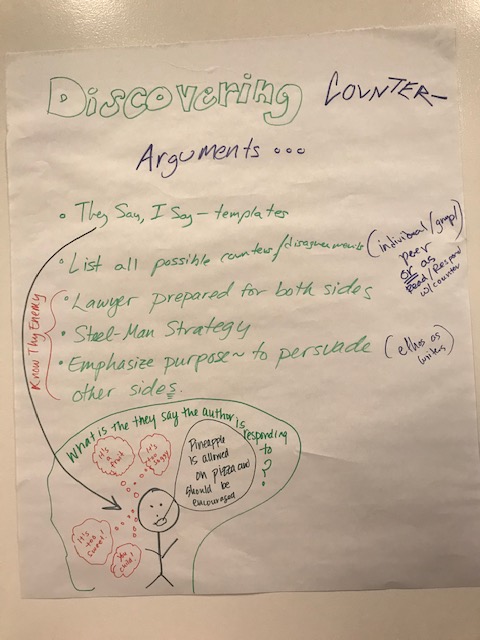 Discovering COUNTER-
Arguments ...
• They Say, I Say - templates
• List all possible counters/disagreements (individual/group/
peer
or as
Read/Respond
w/counter)
Know Thy Enemy
• Lawyer prepared for both sides
• Steel-Man Strategy
• Emphasize purpose~ to persuade (ethos as
writers)
other sides.
What is the they say the author is responding
to
?
It's
a
fruit
It's
too
soggy
Pineapple
is allowed
on pizza and
should be
encouraged
It's
too
sweet!
You
child!